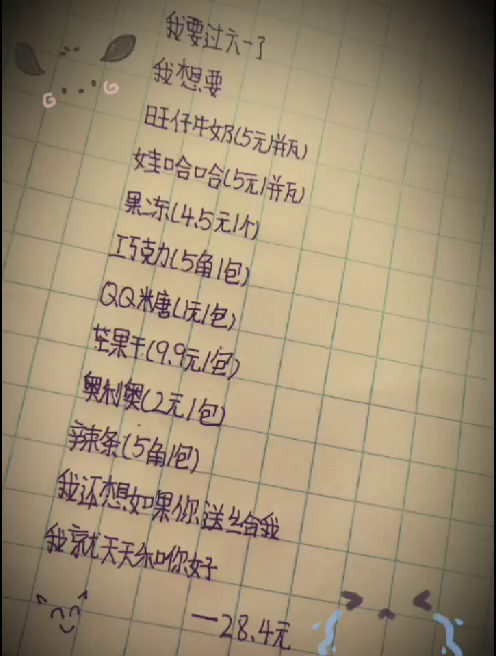 我要过六一了
我想要
旺仔牛奶(5元1瓶)
娃哈哈(5元1瓶)
果冻(4.5元1个)
巧克力(5角1包)
QQ米糖(1元1包)
芒果干(9.9元1包)
奥利奥(2元1包)
辣条(5角1包)
我还想如果你送给我
我就天天和你好
一28.4元